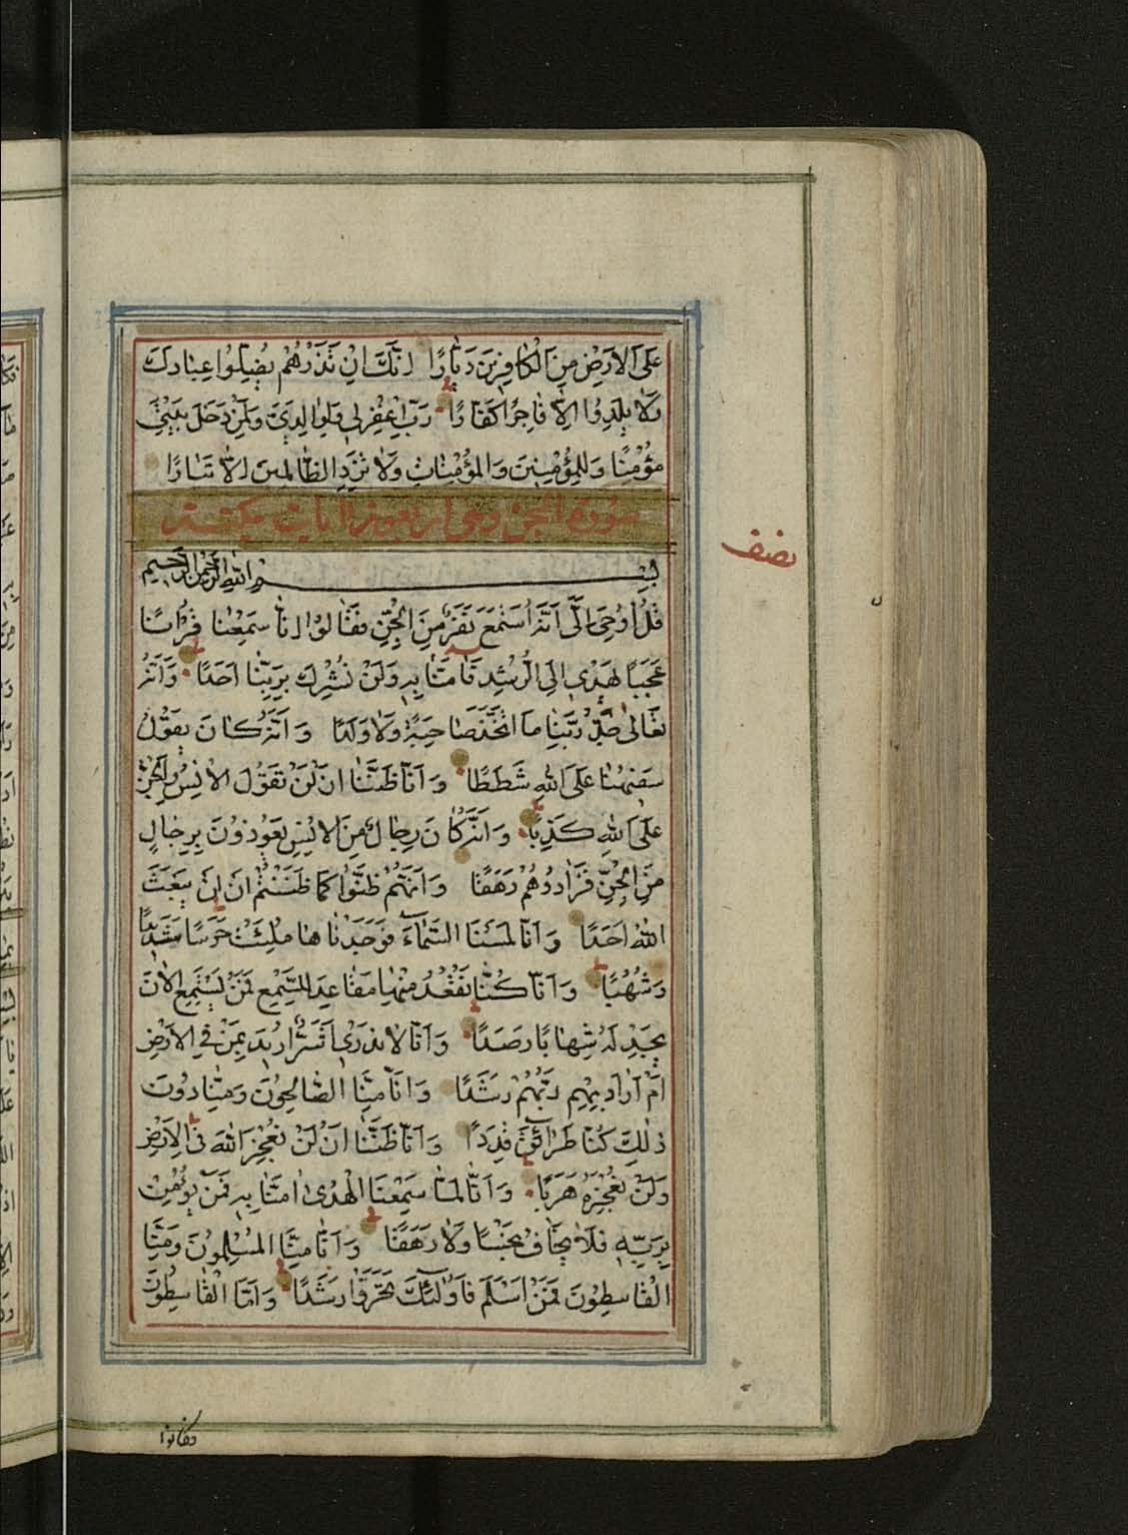 عَلَى الاَرْضِ مِنَ الْكَافِرِينَ دَيَّارًا اِنَّكَ اِنْ تَذَرْهُمْ يُضِلُّوا عِبَادَكَ
وَلَا يَلِدُوا اِلَّا فَاجِرًا كَفَّارًا رَبِّ اغْفِرْ لِي وَلِوَالِدَيَّ وَلِمَنْ دَخَلَ بَيْتِيَ
مُؤْمِنًا وَلِلْمُؤْمِنِينَ وَالْمُؤْمِنَاتِ وَلَا تَزِدِ الظَّالِمِينَ اِلَّا تَبَارًا
سورة الجن وهى
نصف
بِسْمِ اللهِ الرَّحْمٰنِ الرَّحِيمِ
قُلْ اُوحِيَ اِلَيَّ اَنَّهُ اسْتَمَعَ نَفَرٌ مِنَ الْجِنِّ فَقَالُوا اِنَّا سَمِعْنَا قُرْاٰنًا
عَجَبًا يَهْدِي اِلَى الرُّشْدِ فَاٰمَنَّا بِهِ وَلَنْ نُشْرِكَ بِرَبِّنَا اَحَدًا وَاَنَّهُ
تَعَالٰى جَدُّ رَبِّنَا مَا اتَّخَذَ صَاحِبَةً وَلَا وَلَدًا وَاَنَّهُ كَانَ يَقُولُ
سَفِيهُنَا عَلَى اللهِ شَطَطًا وَاَنَّا ظَنَنَّا اَنْ لَنْ تَقُولَ الاِنْسُ وَالْجِنُّ
عَلَى اللهِ كَذِبًا وَاَنَّهُ كَانَ رِجَالٌ مِنَ الاِنْسِ يَعُوذُونَ بِرِجَالٍ
مِنَ الْجِنِّ فَزَادُوهُمْ رَهَقًا وَاَنَّهُمْ ظَنُّوا كَمَا ظَنَنْتُمْ اَنْ لَنْ يَبْعَثَ
اللهُ اَحَدًا وَاَنَّا لَمَسْنَا السَّمَاءَ فَوَجَدْنَاهَا مُلِئَتْ حَرَسًا شَدِيدًا
وَشُهُبًا وَاَنَّا كُنَّا نَقْعُدُ مِنْهَا مَقَاعِدَ لِلسَّمْعِ فَمَنْ يَسْتَمِعِ الاٰنَ
يَجِدْ لَهُ شِهَابًا رَصَدًا وَاَنَّا لَا نَدْرِي اَشَرٌّ اُرِيدَ بِمَنْ فِي الاَرْضِ
اَمْ اَرَادَ بِهِمْ رَبُّهُمْ رَشَدًا وَاَنَّا مِنَّا الصَّالِحُونَ وَمِنَّا دُونَ
ذٰلِكَ كُنَّا طَرَائِقَ قِدَدًا وَاَنَّا ظَنَنَّا اَنْ لَنْ نُعْجِزَ اللهَ فِي الاَرْضِ
وَلَنْ نُعْجِزَهُ هَرَبًا وَاَنَّا لَمَّا سَمِعْنَا الْهُدٰى اٰمَنَّا بِهِ فَمَنْ يُؤْمِنْ
بِرَبِّهِ فَلَا يَخَافُ بَخْسًا وَلَا رَهَقًا وَاَنَّا مِنَّا الْمُسْلِمُونَ وَمِنَّا
الْقَاسِطُونَ فَمَنْ اَسْلَمَ فَاُولٰئِكَ تَحَرَّوْا رَشَدًا وَاَمَّا الْقَاسِطُونَ
فكانوا